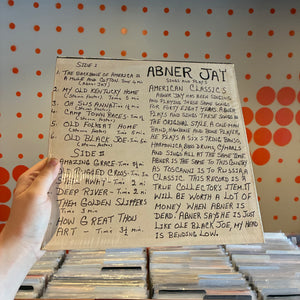 SIDE I
1. THE BACKBONE OF AMERICA IS
A MULE AND COTTON. Time 4 m
(ABNER JAY)
2. MY OLD KENTUCKY HOME
(Stephen Foster) Time 5 m
3. OH SUSANNAH. Time
4. CAMP TOWN RACES
(Stephen Foster)
5. OLD FOLKS AT HOME
(Stephen Foster)
6. OLD BLACK JOE. Time
(Stephen Foster)
SIDE II
AMAZING GRACE. Time
OLD RUGGED CROSS. Time
AWAY. Time 2 m
DEEP RIVER. Time 2 m
THEM GOLDEN SLIPPERS
Time 3 min
HOW GREAT THOU
ART - Time 3½ min
ABNER JAY
SINGS AND PLAYS
AMERICAN CLASSICS.
ABNER JAY HAS BEEN SINGING
AND PLAYING THESE SAME SONGS
FOR FORTY EIGHT YEARS. ABNER
PLAYS AND SINGS THESE SONGS IN
THE ORIGINAL STYLE. A ONE-MAN
BAND, HAMBONE AND BONE PLAYER,
HE PLAYS A SIX STRING BANJO,
HARMONICA, BASS DRUMS, CYMBALS
AND SINGS ALL AT THE SAME TIME.
ABNER IS THE SAME TO THIS COUNTRY
AS TOSCANINI IS TO RUSSIA. A
CLASSIC. THIS RECORD IS A
TRUE COLLECTOR'S ITEM. IT
WILL BE WORTH A LOT OF
MONEY WHEN ABNER IS
DEAD. ABNER SAY HE IS JUST
LIKE OLE BLACK JOE, MY HEAD
IS BENDING LOW.